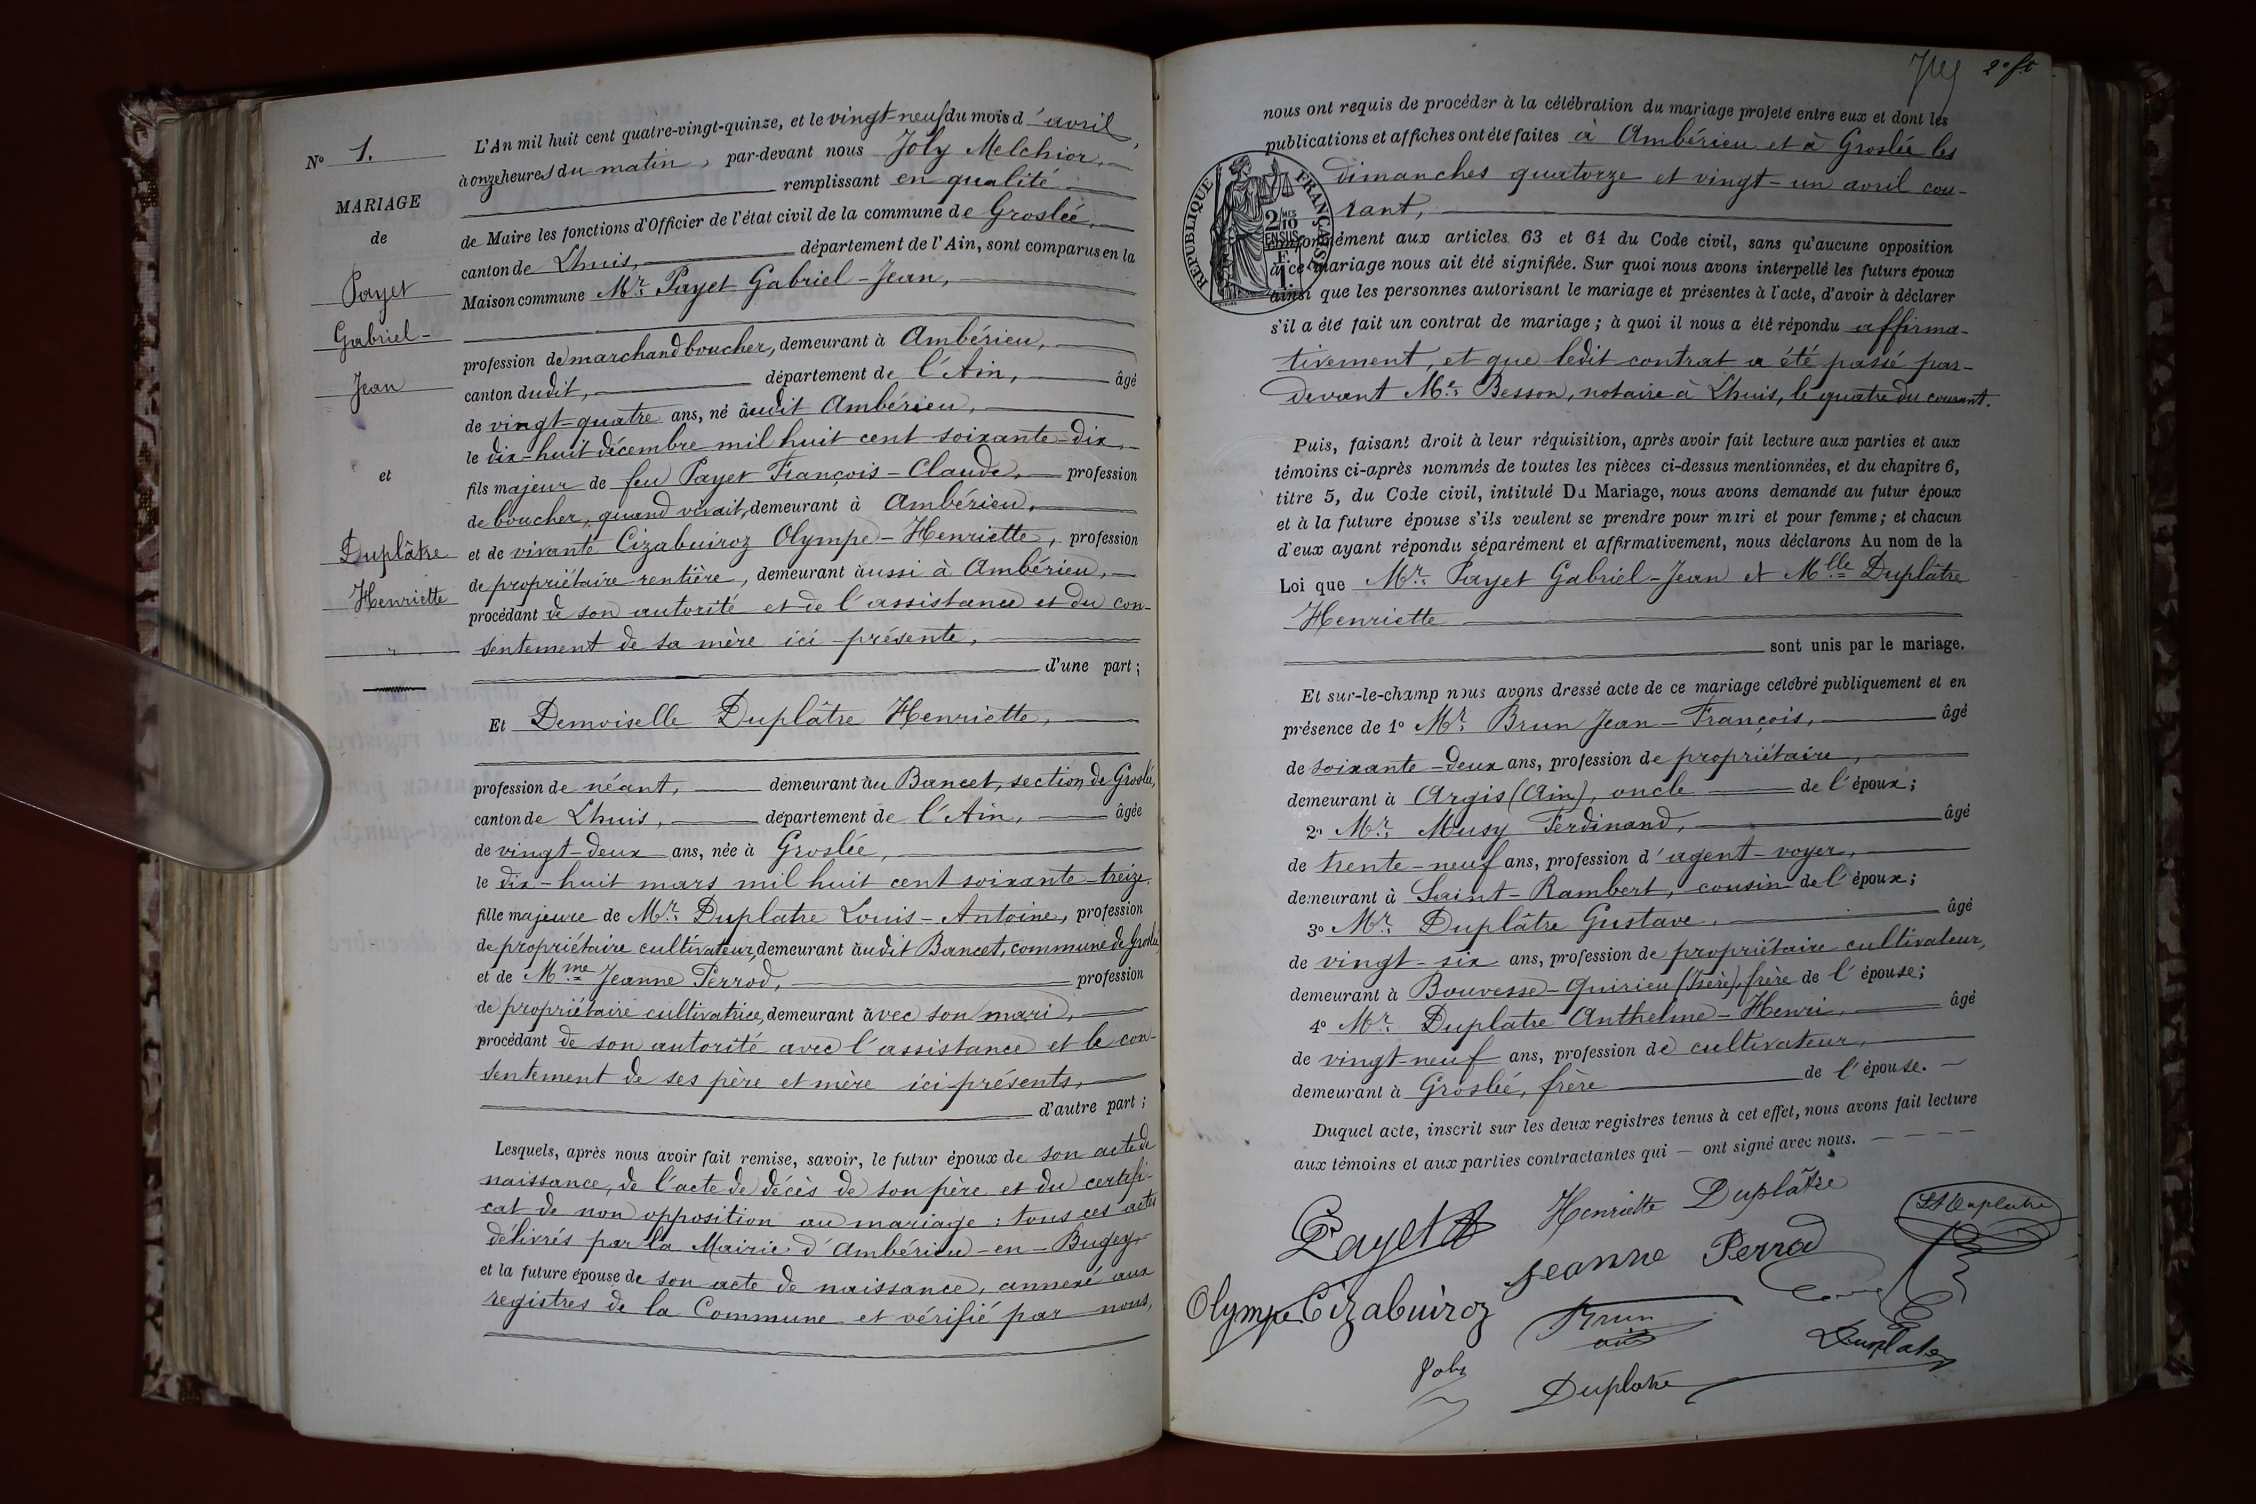 N° 1.
MARIAGE
de
Payet
Gabriel-
Jean
et
Duplâtre
Henriette
L'An mil huit cent quatre-vingt-quinze, et le vingt-neuf du mois d'avril,
à onze heures du matin, par-devant nous Joly Melchior,
remplissant en qualité
de Maire les fonctions d'Officier de l'état civil de la commune de Groslée,
canton de Lhuis, département de l'Ain, sont comparus en la
Maison commune Mr. Payet Gabriel-Jean,
profession de marchand boucher, demeurant à Ambérieu,
canton dudit, département de l'Ain, âgé
de vingt-quatre ans, né audit Ambérieu,
le dix-huit décembre mil huit cent soixante-dix,
fils majeur de feu Payet François-Claude, profession
de boucher, quand vivait, demeurant à Ambérieu,
et de vivante Cizabuiroz Olympe-Henriette, profession
de propriétaire rentière, demeurant aussi à Ambérieu,
procédant de son autorité et de l'assistance et du con-
sentement de sa mère ici présente,
d'une part;
Et Demoiselle Duplâtre Henriette,
profession de néant, demeurant au Bancet, section de Groslée,
canton de Lhuis, département de l'Ain, âgée
de vingt-deux ans, née à Groslée,
le dix-huit mars mil huit cent soixante-treize,
fille majeure de Mr. Duplatre Louis-Antoine, profession
de propriétaire cultivateur, demeurant audit Bancet, commune de Groslée
et de Mme Jeanne Perrod, profession
de propriétaire cultivatrice, demeurant avec son mari,
procédant de son autorité avec l'assistance et le con-
sentement de ses père et mère ici présents,
d'autre part;
Lesquels, après nous avoir fait remise, savoir, le futur époux de son acte de
naissance, de l'acte de décès de son père et du certifi-
cat de non opposition au mariage: tous ces actes
délivrés par la Mairie d'Ambérieu-en-Bugey,
et la future épouse de son acte de naissance, annexé aux
registres de la Commune et vérifié par nous,
2e ft
nous ont requis de procéder à la célébration du mariage projeté entre eux et dont les
publications et affiches ont été faites à Ambérieu et à Groslée les
dimanches quatorze et vingt-un avril cou-
rant,
RÉPUBLIQUE FRANÇAISE
2/10 MES
EN SUS
F.
1.
conformément aux articles 63 et 64 du Code civil, sans qu'aucune opposition
à ce mariage nous ait été signifiée. Sur quoi nous avons interpellé les futurs époux
ainsi que les personnes autorisant le mariage et présentes à l'acte, d'avoir à déclarer
s'il a été fait un contrat de mariage; à quoi il nous a été répondu affirma-
tivement, et que ledit contrat a été passé par-
devant Me. Besson, notaire à Lhuis, le quatre du courant.
Puis, faisant droit à leur réquisition, après avoir fait lecture aux parties et aux
témoins ci-après nommés de toutes les pièces ci-dessus mentionnées, et du chapitre 6,
titre 5, du Code civil, intitulé Du Mariage, nous avons demandé au futur époux
et à la future épouse s'ils veulent se prendre pour mari et pour femme; et chacun
d'eux ayant répondu séparément et affirmativement, nous déclarons Au nom de la
Loi que Mr. Payet Gabriel-Jean et Mlle Duplâtre
Henriette
sont unis par le mariage.
Et sur-le-champ nous avons dressé acte de ce mariage célébré publiquement et en
présence de 1° Mr. Brun Jean-François, âgé
de soixante-deux ans, profession de propriétaire,
demeurant à Argis (Ain), oncle de l'époux;
2° Mr. Musy Ferdinand, âgé
de trente-neuf ans, profession d'agent-voyer,
demeurant à Saint-Rambert, cousin de l'époux;
3° Mr. Duplâtre Gustave, âgé
de vingt-six ans, profession de propriétaire cultivateur,
demeurant à Bouvesse-Quirieu (Isère), frère de l'épouse;
4° Mr. Duplatre Anthelme-Henri, âgé
de vingt-neuf ans, profession de cultivateur,
demeurant à Groslée, frère de l'épouse.
Duquel acte, inscrit sur les deux registres tenus à cet effet, nous avons fait lecture
aux témoins et aux parties contractantes qui — ont signé avec nous.
Payet Henriette Duplâtre Duplatre
Jeanne Perrod
Olympe Cizabuiroz Brun
Duplatre
Joly Duplatre